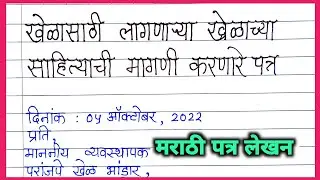 खेळासाठी लागणाऱ्या खेळाच्या
साहित्याची मागणी करणारे पत्र
दिनांक : 05 ऑक्टोबर, 2022
प्रति,
माननीय व्यवस्थापक
परांजपे खेळ भांडार,
मराठी पत्र लेखन